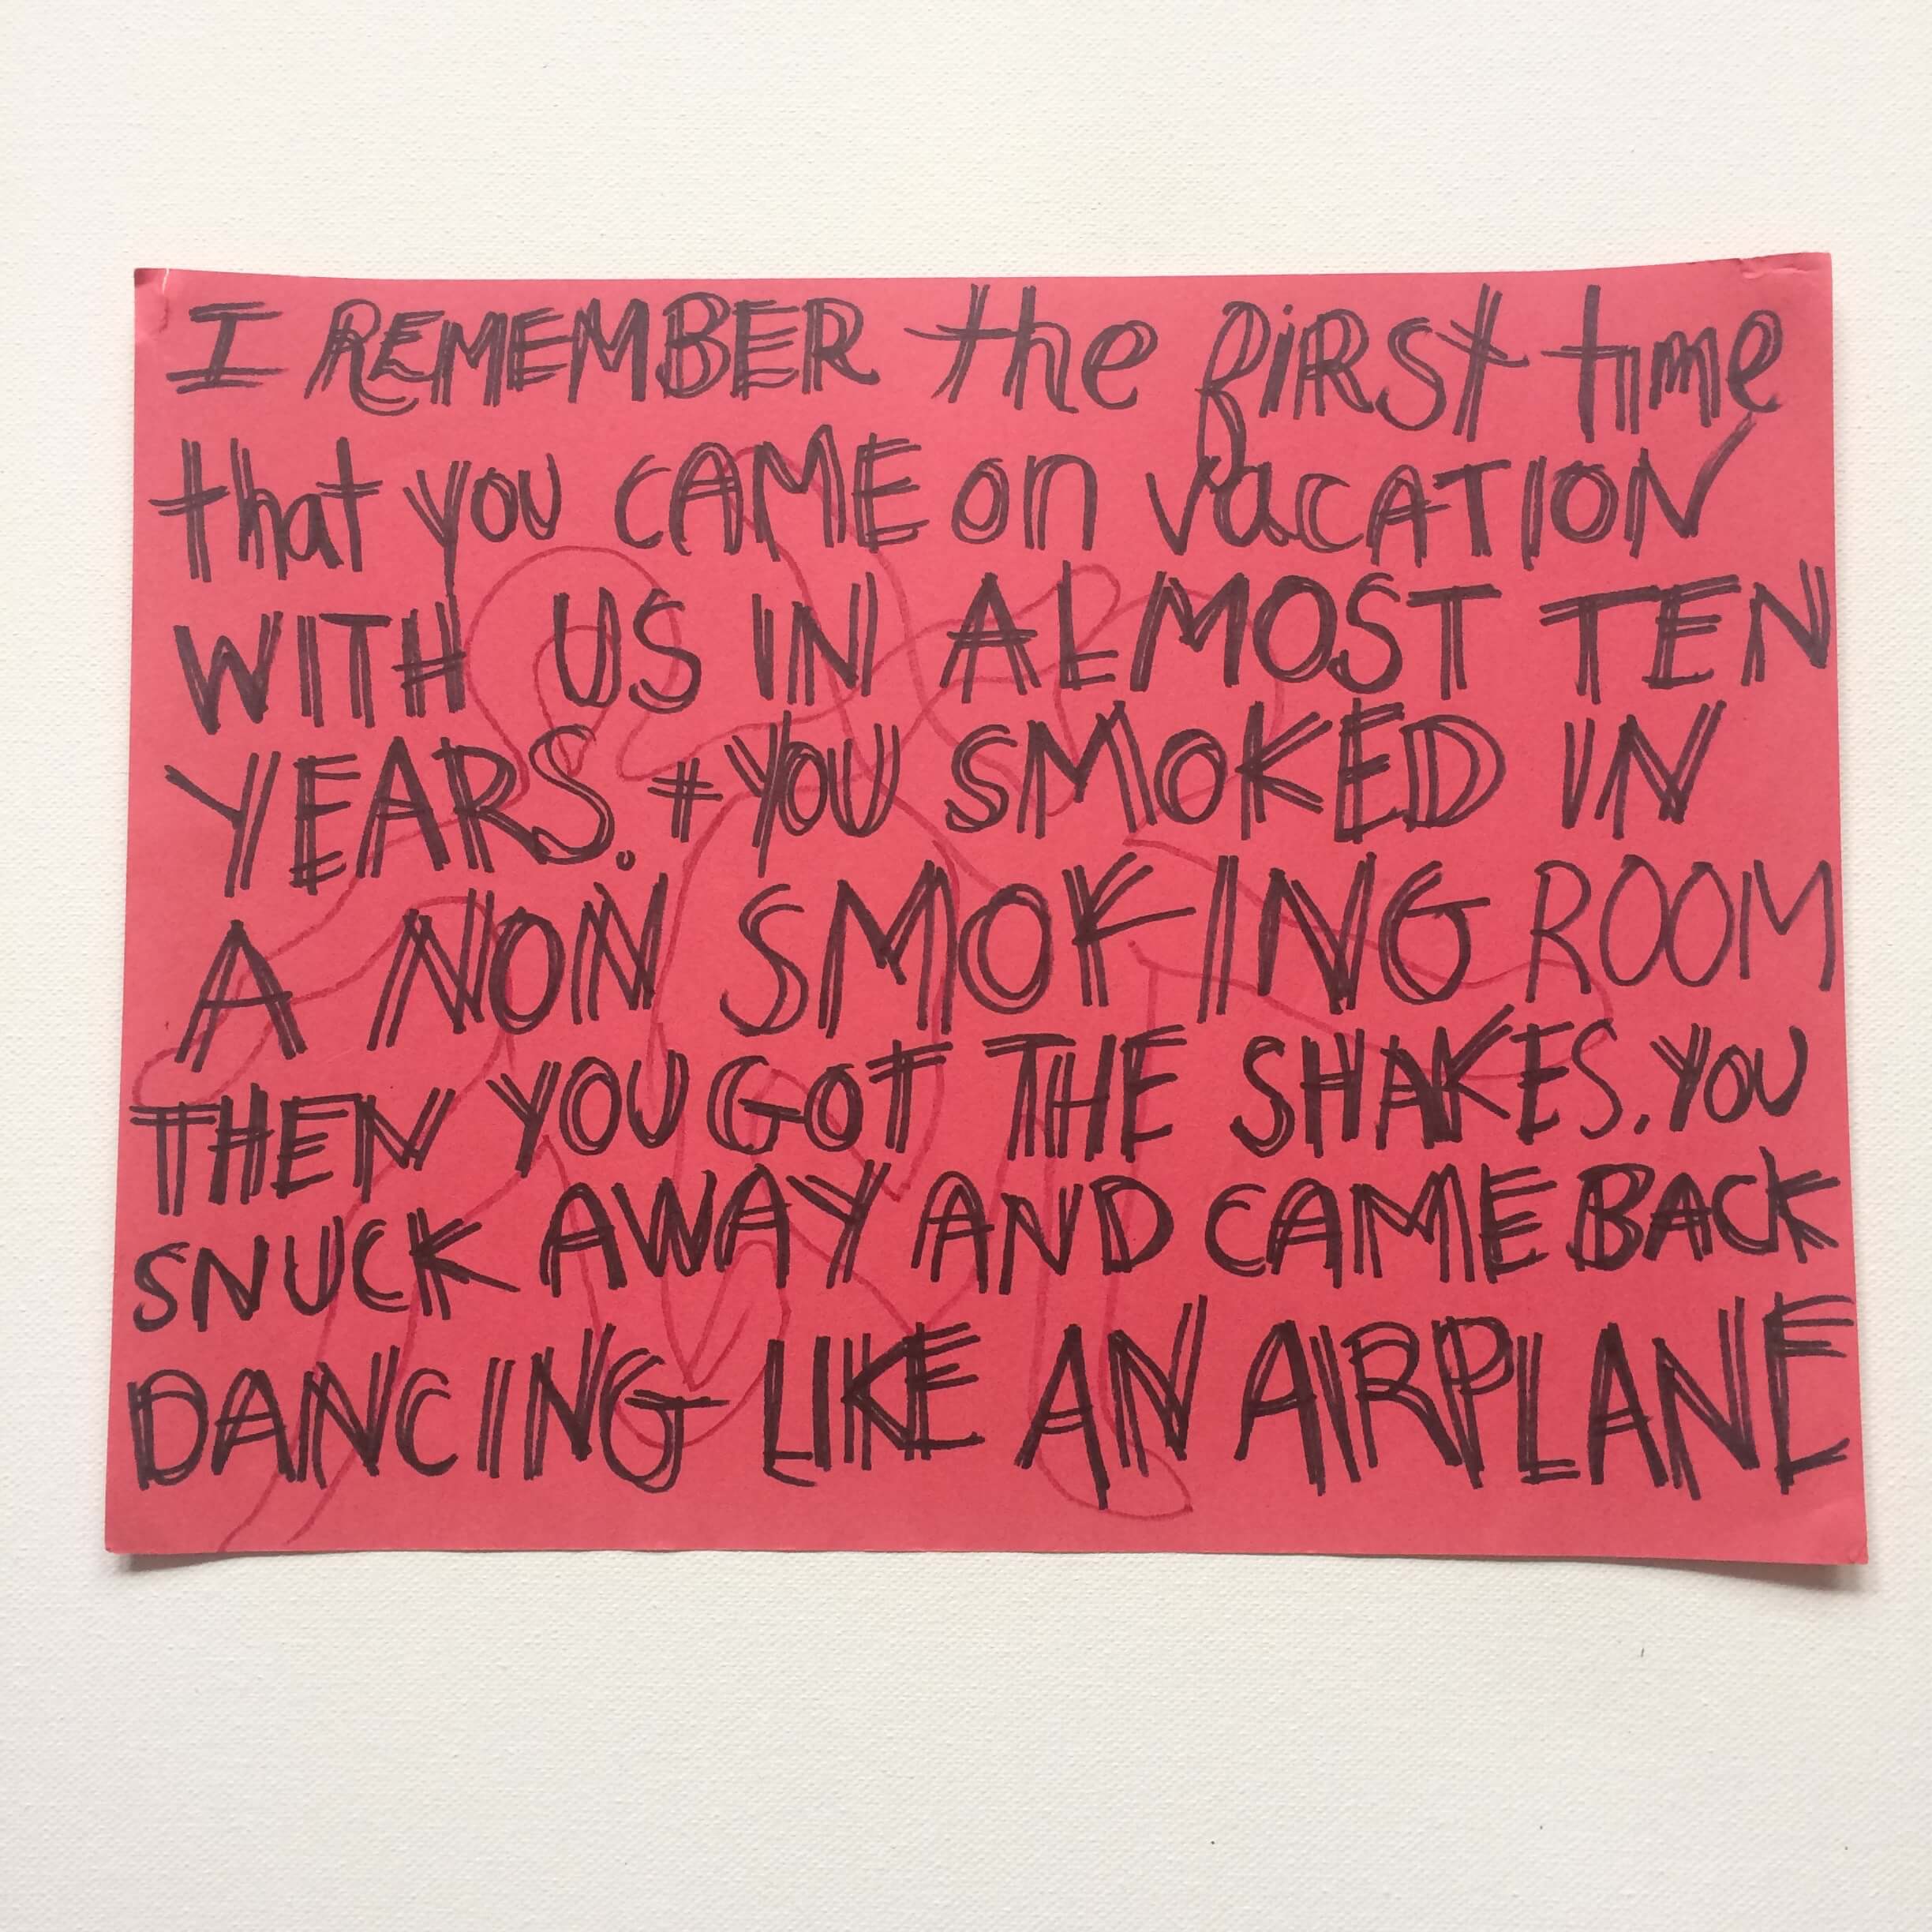 I REMEMBER the fiRSt time
that you CAME on vacATION
WITH US IN ALMOST TEN
YEARS. + YOU SMOKED IN
A NON SMOKING ROOM
THEN YOU GOT THE SHAKES. YOU
SNUCK AWAY AND CAME BACK
DANCING LIKE AN AIRPLANE